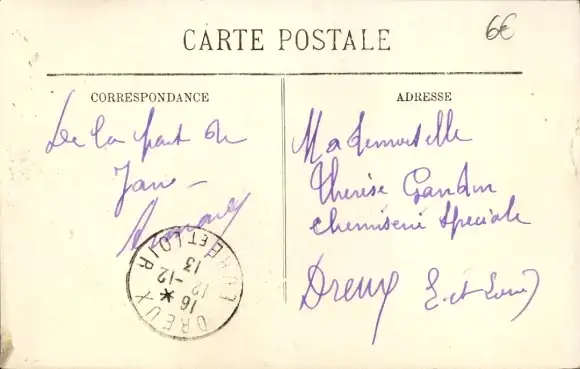 6€
CARTE POSTALE
CORRESPONDANCE
De la part de
Jane
ADRESSE
Mademoiselle
Thérèse Gandon
chemiserie Spéciale
Dreux E. et Loir
DREUX
EURE ET LOIR
16 *
12 -12
13